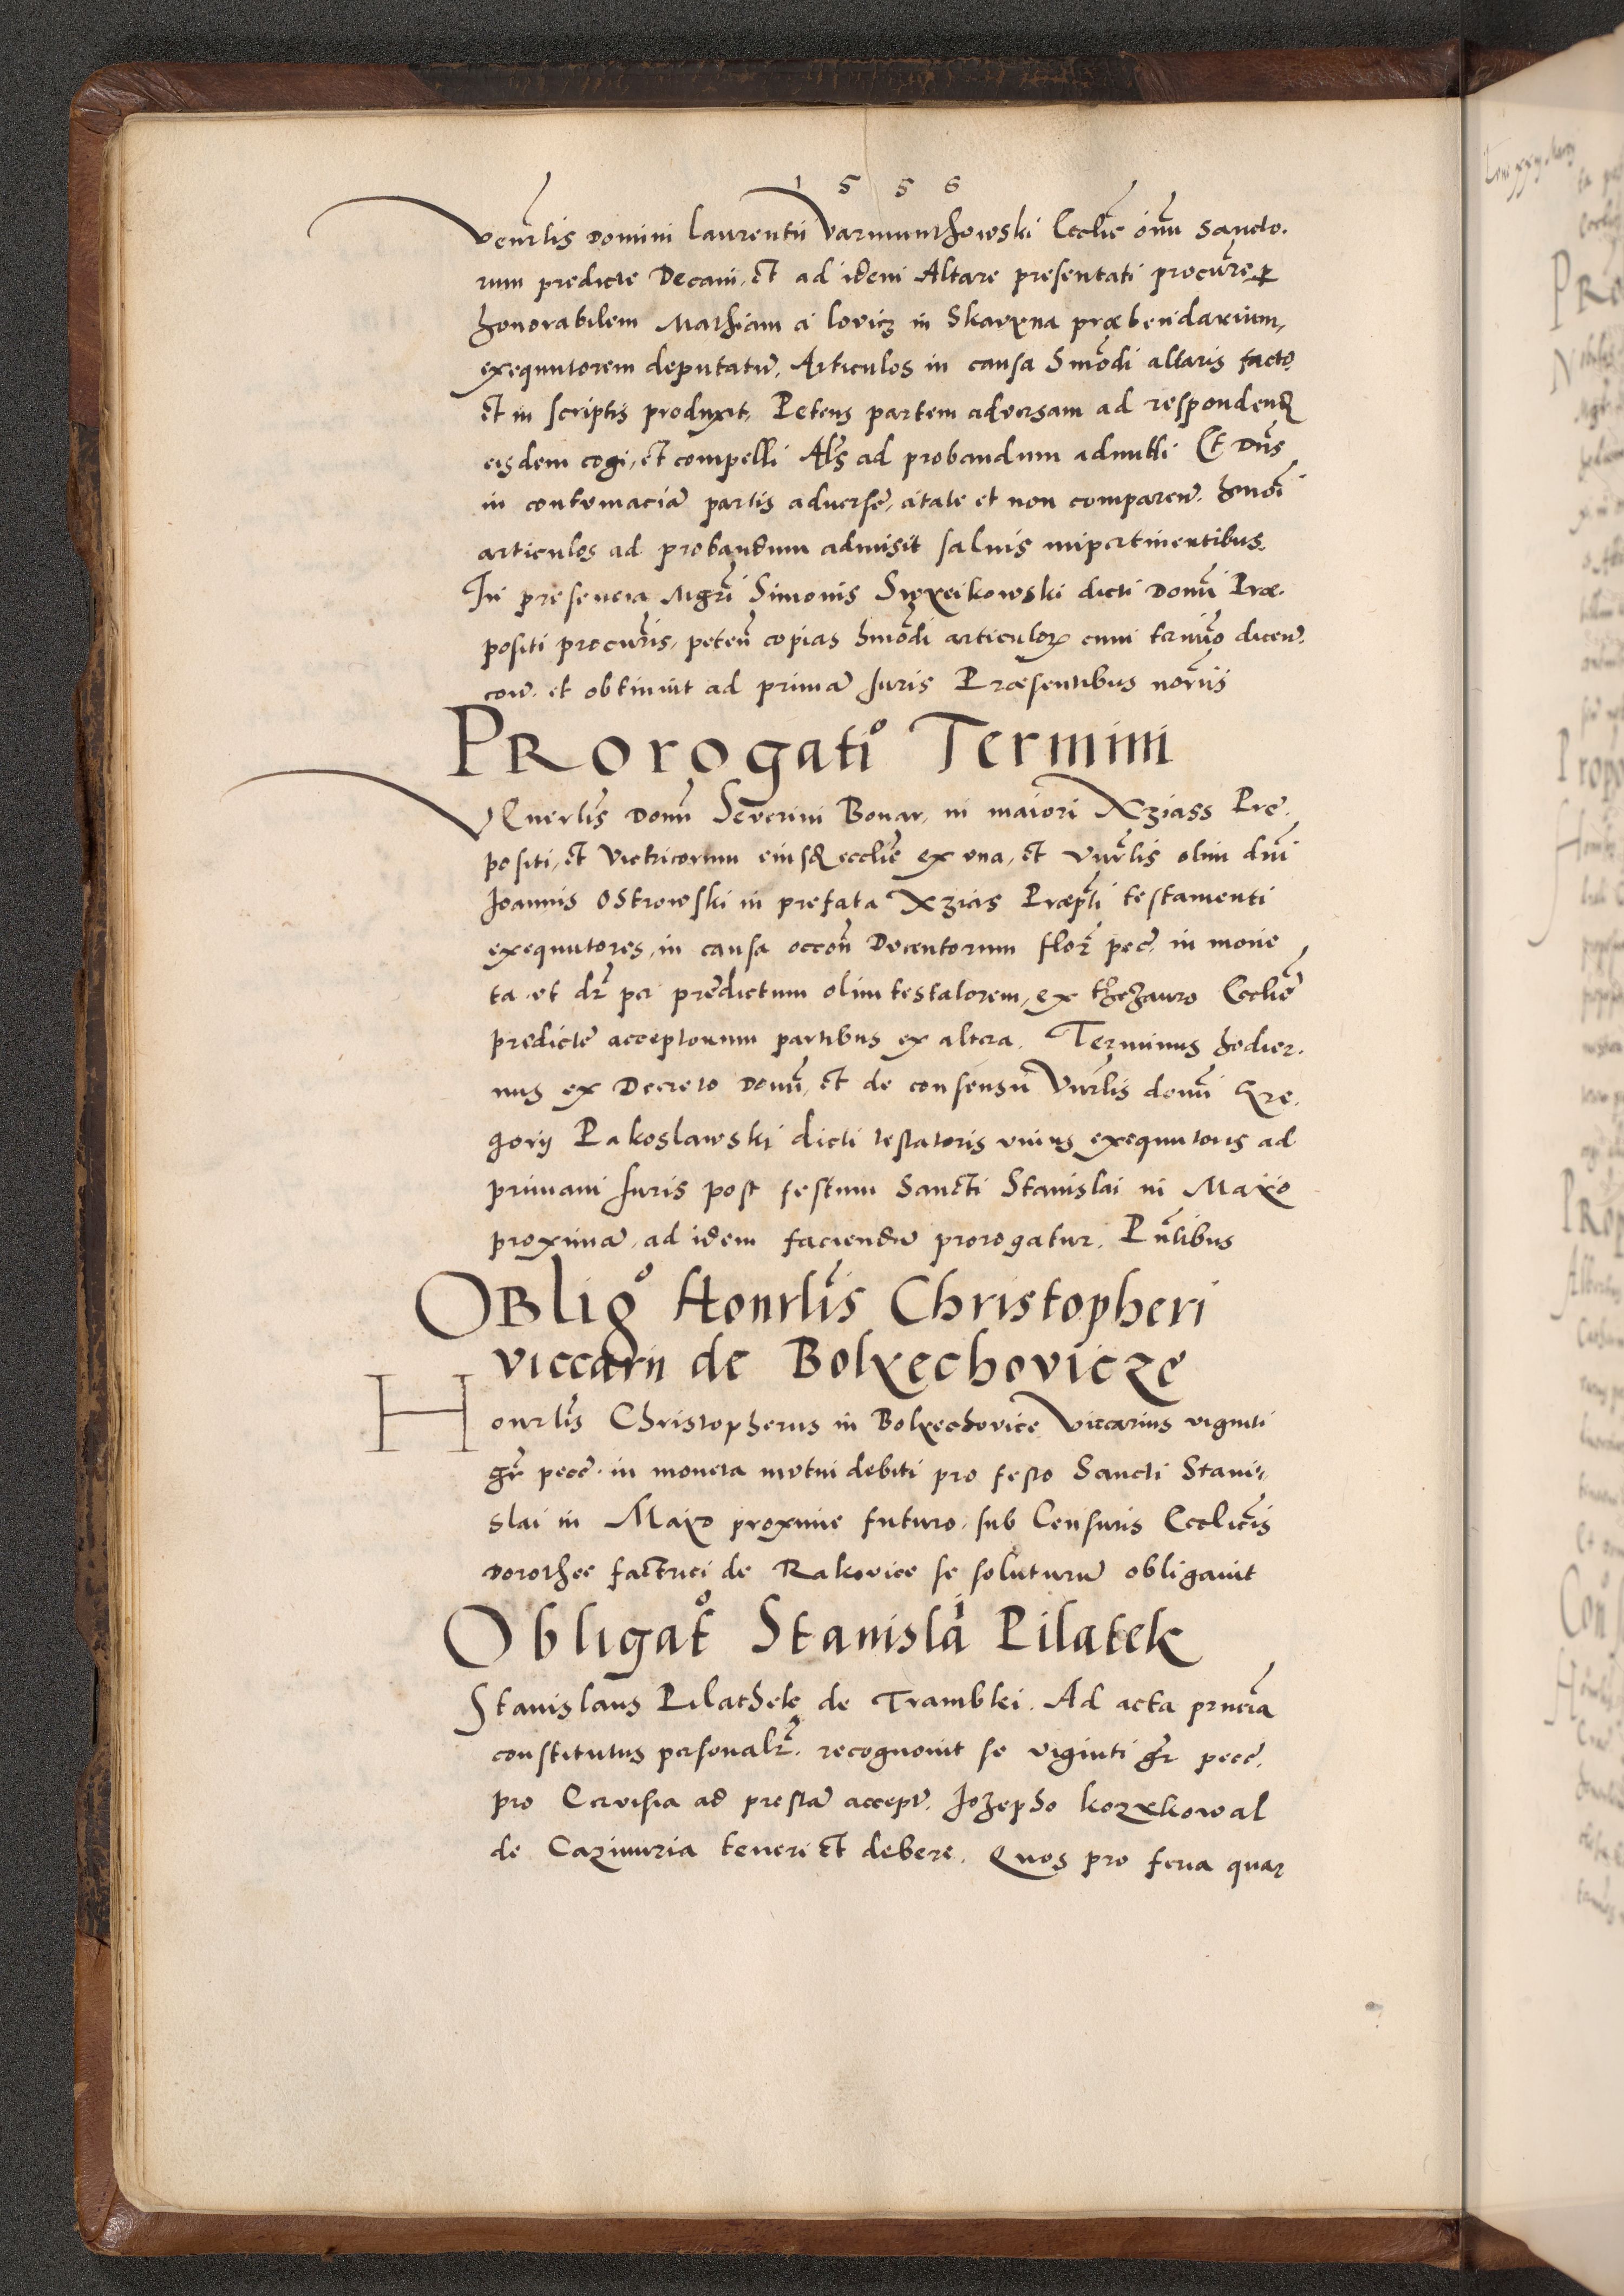 1 5 5 6
Venerlis Domini Laurentii Varmunthowski Ecclie oim Sancto.
rum predicte Decani, et ad idem Altare presentati procure per
honorabilem Mathiam a Lovicz in Skarxna præbendarium,
exequutorem deputatu. Articulos in causa hmodi altaris facto
et in scriptis produxit, Petens partem adversam ad respondend
eisdem cogi, et compelli Als ad probandum admitti Et Dns
in contumacia partis adverse, citate et non comparen. hmoi
articulos ad probandum admisit salvis impertinentibus.
In presencia Mgri Simonis Swxeikowski dicti Domi Præ.
positi procuris, peten copias hmodi articulor cum termio dicen.
con. et obtinuit ad prima Juris Præsentibus noriis
PRorogatio Termini
VEnerlis Domi Severini Bonar, in maiori Xziass Pre.
positi, et Victricorum eiusd ecclie ex una, et Vnrlis olim dni
Joannis Ostrowski in prefata Xzias Præpti testamenti
exequutores, in causa occon Ducentorum flor pec. in mone
ta et dr per predictum olim testatorem, ex thezauro Ecclie
predicte acceptorum partibus ex altera. Terminus hodier.
nus ex Decreto Domi, et de consensu Vnrlis domi Gre.
gorij Pakoslawski dicti testatoris unius exequutoris ad
primam Juris post festum Sancti Stanislai in Maio
proxima, ad idem faciendu prorogatur. Pntibus
OBligo Honrlis Christopheri
viccarii de Bolxechovicze
Honrlis Christopherus in Bolxechovice Viccarius viginti
gr pecc. in moneta mutui debiti pro festo Sancti Stani-
slai in Maio proxime futuro, sub Censuris Ecclicis
Dorothee factrici de Rakovice se soluturu obligavit
Obligato Stanislai Pilatek
Stanislaus Pilathek de Trambki. Ad acta prncia
constitutus personalr. recognovit se viginti gr pecc.
pro Cervisia ad presta accept. Jozepho kozxkowal
de Cazimiria teneri et debere. Quos pro feria quar